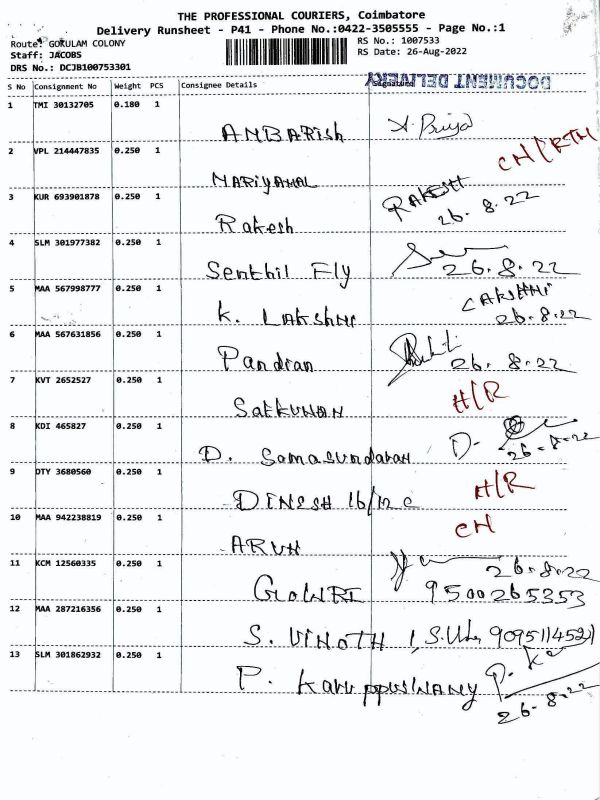 THE PROFESSIONAL COURIERS, Coimbatore
Delivery Runsheet - P41 - Phone No.:0422-3505555 - Page No.:1
Route: GOKULAM COLONY RS No.: 1007533
Staff: JACOBS RS Date: 26-Aug-2022
DRS No.: DCJB100753301
DOCUMENT DELIVERY
S No Consignment No Weight PCS Consignee Details Signature
1 TMI 30132705 0.180 1
AMBARish
2 VPL 214447835 0.250 1 CH/RTN
MARiYAMAL
3 KUR 693901878 0.250 1 RAKESH
Rakesh 26.8.22
4 SLM 301977382 0.250 1
Senthil Fly 26.8.22
5 MAA 567998777 0.250 1 LAKSHMI
K. LAKSHMI 26.8.22
6 MAA 567631856 0.250 1
Pandian 26.8.22
7 KVT 2652527 0.250 1 H/R
SatkUNAN
8 KDI 465827 0.250 1 D.
D. SomaSundaram 26.8.22
9 OTY 3680560 0.250 1 H/R
DINESH 16/12 C
10 MAA 942238819 0.250 1 CH
ARUN
11 KCM 12560335 0.250 1 26.8.22
GOWRI 9500265353
12 MAA 287216356 0.250 1
S. VINOTH 9095114521
13 SLM 301862932 0.250 1
P. KaruppusWAMY 26.8.22